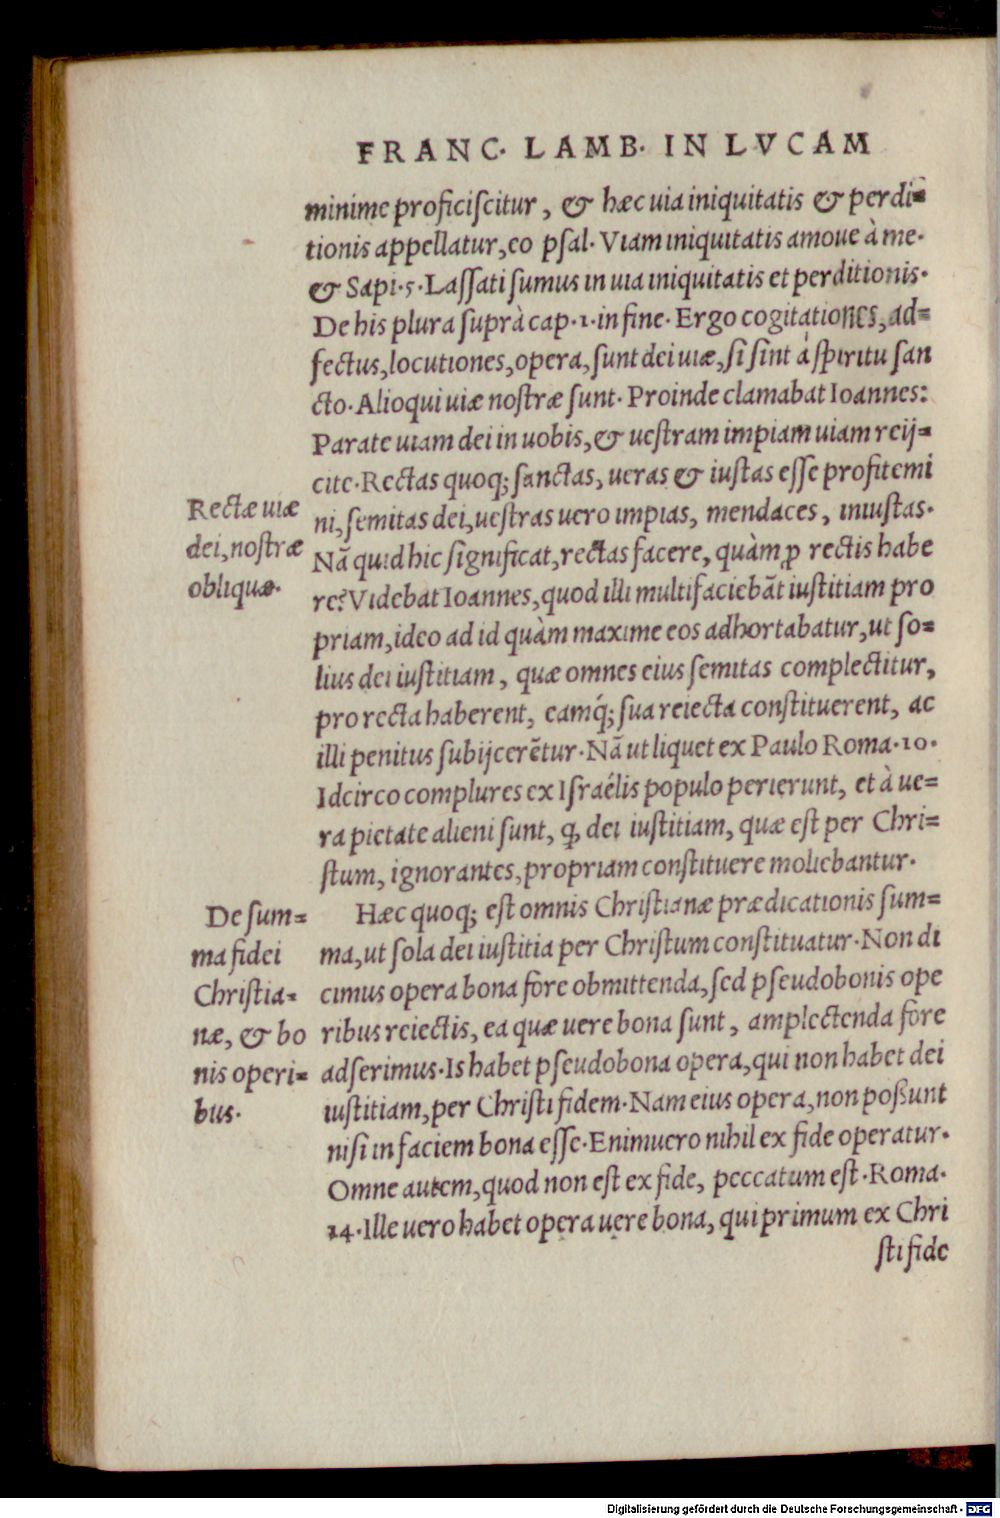 FRANC. LAMB. IN LVCAM
minime proficiscitur, & hæc uia iniquitatis & perdi=
tionis appellatur, eo psal. Viam iniquitatis amoue à me.
& Sapi. 5. Lassati sumus in uia iniquitatis et perditionis.
De his plura suprà cap. 1. in fine. Ergo cogitationes, ad=
fectus, locutiones, opera, sunt dei uiæ, si sint á spiritu san
cto. Alioqui uiæ nostræ sunt. Proinde clamabat Ioannes:
Parate uiam dei in uobis, & uestram impiam uiam reij=
cite. Rectas quoq; sanctas, ueras & iustas esse profitemi
ni, semitas dei, uestras uero impias, mendaces, iniustas.
Nã quid hic significat, rectas facere, quàm ꝓ rectis habe
re? Videbat Ioannes, quod illi multifaciebãt iustitiam pro
priam, ideo ad id quàm maxime eos adhortabatur, ut so=
lius dei iustitiam, quæ omnes eius semitas complectitur,
pro recta haberent, eamq́; sua reiecta constituerent, ac
illi penitus subijcerẽtur. Nã ut liquet ex Paulo Roma. 10.
Idcirco complures ex Israélis populo perierunt, et à ue=
ra pietate alieni sunt, ꝙ dei iustitiam, quæ est per Chri=
stum, ignorantes, propriam constituere moliebantur.
Hæc quoq; est omnis Christianæ prædicationis sum=
ma, ut sola dei iustitia per Christum constituatur. Non di
cimus opera bona fore obmittenda, sed pseudobonis ope
ribus reiectis, ea quæ uere bona sunt, amplectenda fore
adserimus. Is habet pseudobona opera, qui non habet dei
iustitiam, per Christi fidem. Nam eius opera, non poßunt
nisi in faciem bona esse. Enimuero nihil ex fide operatur.
Omne autem, quod non est ex fide, peccatum est. Roma.
14. Ille uero habet opera uere bona, qui primum ex Chri
sti fide
Rectæ uiæ
dei, nostræ
obliquæ.
De sum=
ma fidei
Christia=
næ, & bo
nis operi=
bus.
Digitalisierung gefördert durch die Deutsche Forschungsgemeinschaft - DFG